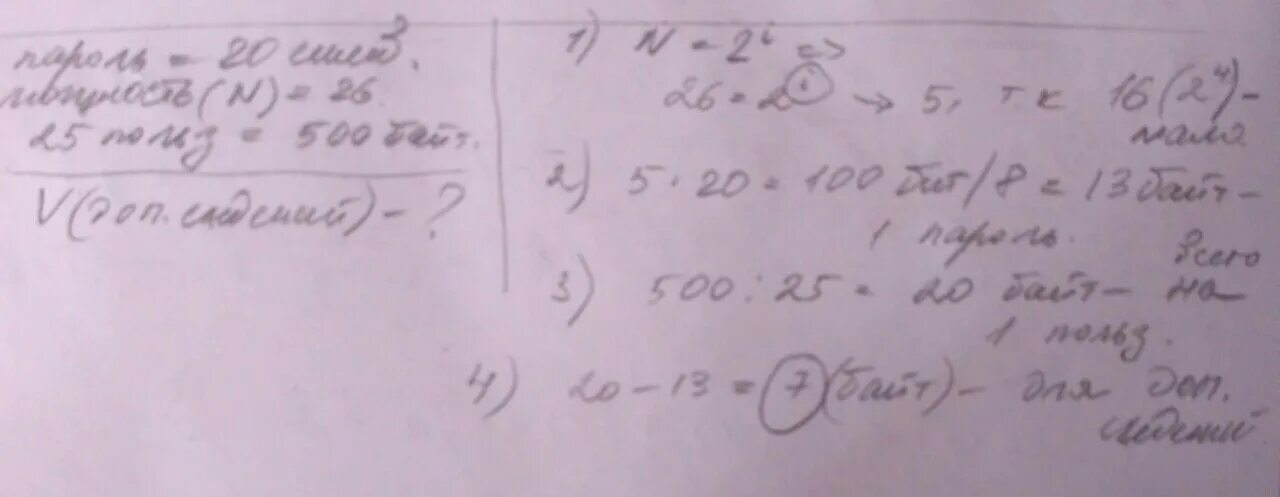 пароль = 20 симв.
мощность (N) = 26
25 польз = 500 байт.
V(доп. сведений) - ?
1) N = 2^i =>
26 = 2^i → 5, т.к 16(2^4) -
мало
2) 5 · 20 = 100 бит/8 = 13 байт -
1 пароль.
3) 500 : 25 = 20 байт - всего на
1 польз.
4) 20 - 13 = 7 (байт) - для доп.
сведений